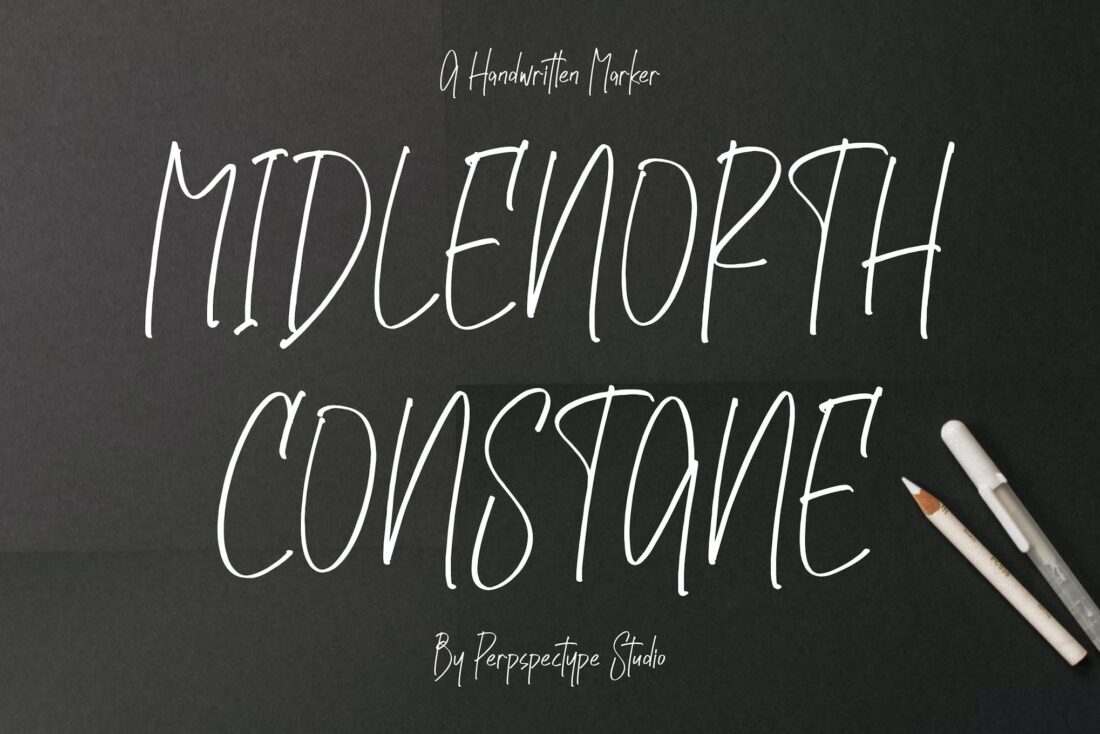 A Handwritten Marker
MIDLENORTH
CONSTANE
By Perpspectype Studio